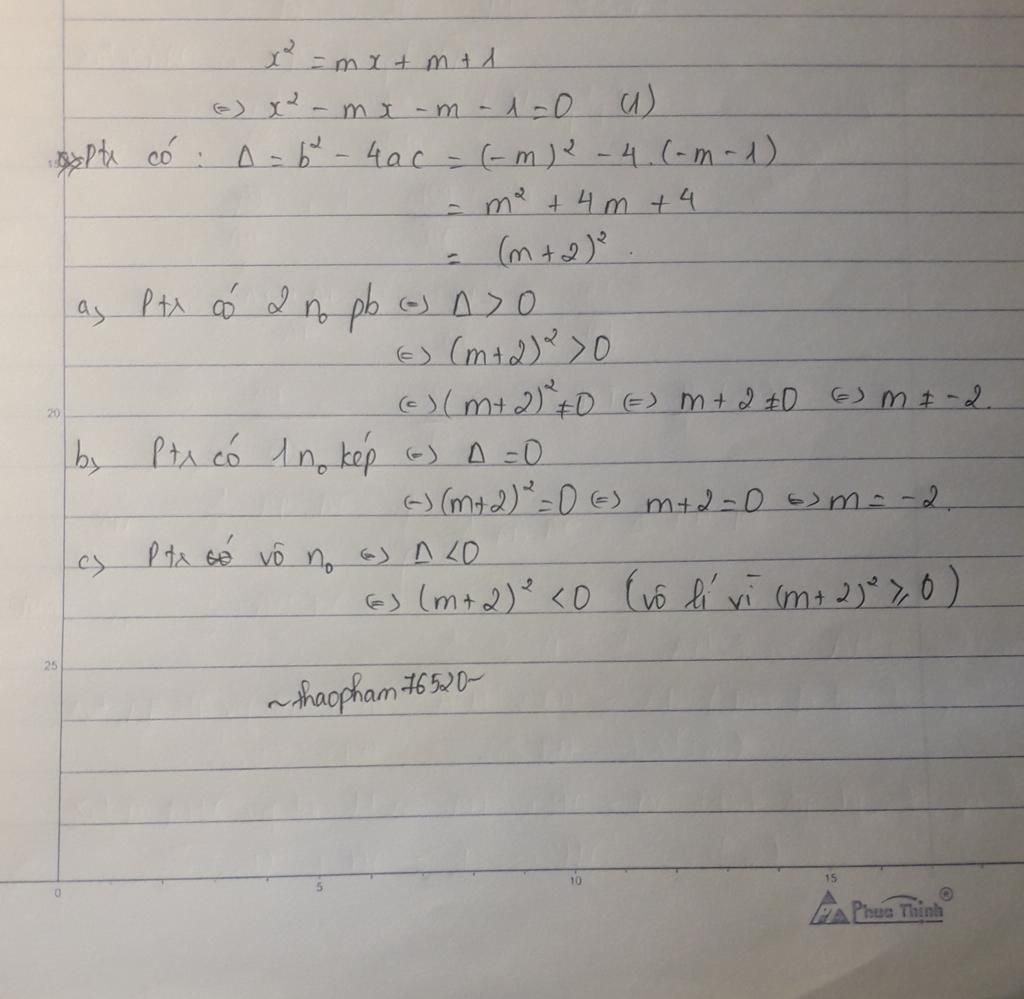 x² = mx + m + 1
⇔ x² - mx - m - 1 = 0 (1)
Ptx có : Δ = b² - 4ac = (-m)² - 4.(-m-1)
= m² + 4m + 4
= (m+2)².
a, Ptx có 2 n₀ pb ⇔ Δ > 0
⇔ (m+2)² > 0
20
⇔ (m+2)² ≠ 0 ⇔ m + 2 ≠ 0 ⇔ m ≠ -2.
b, Ptx có 1 n₀ kép ⇔ Δ = 0
⇔ (m+2)² = 0 ⇔ m+2 = 0 ⇔ m = -2.
c, Ptx vô n₀ ⇔ Δ < 0
⇔ (m+2)² < 0 (vô lí vì (m+2)² ≥ 0)
25
~thaopham76520~
0 5 10 15
Phuc Thinh ®